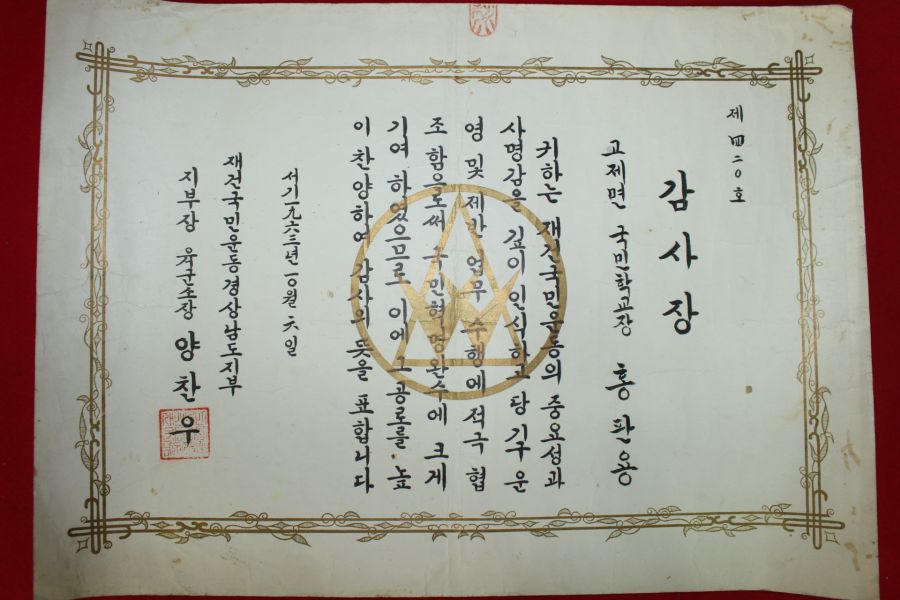 제 四二0호
감사장
고제면 국민학교장 홍판용
귀하는 재건국민운동의 중요성과
사명감을 깊이 인식하고 당 기구 운
영 및 제반 업무 수행에 적극 협
조 함으로써 국민혁명완수에 크게
기여 하였으므로 이에 그 공로를 높
이 찬양하여 감사의 뜻을 표합니다
서기一九六三년 一0월 六일
재건국민운동경상남도지부
지부장 육군소장 양찬우